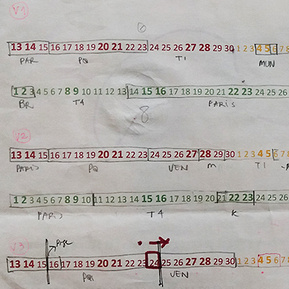 V1
8
13 14 15 16 17 18 19 20 21 22 23 24 25 26 27 28 29 30 1 2 3 4 5 6
PAR PQ T1 MUN
1 2 3 4 5 6 7 8 9 10 11 12 13 14 15 16 17 18 19 20 21 22 23 24 25
BR T4 PARIS
8
V2
13 14 15 16 17 18 19 20 21 22 23 24 25 26 27 28 29 30 1 2 3 4 5 6
PARIS PQ VEN M T1
1 2 3 4 5 6 7 8 9 10 11 12 13 14 15 16 17 18 19 20 21 22 23 24 25
PARIS T4 K
V3
13 14 15 16 17 18 19 20 21 22 23 24 25 26 27 28 29 30 1 2 3 4 5 6
PQ VEN